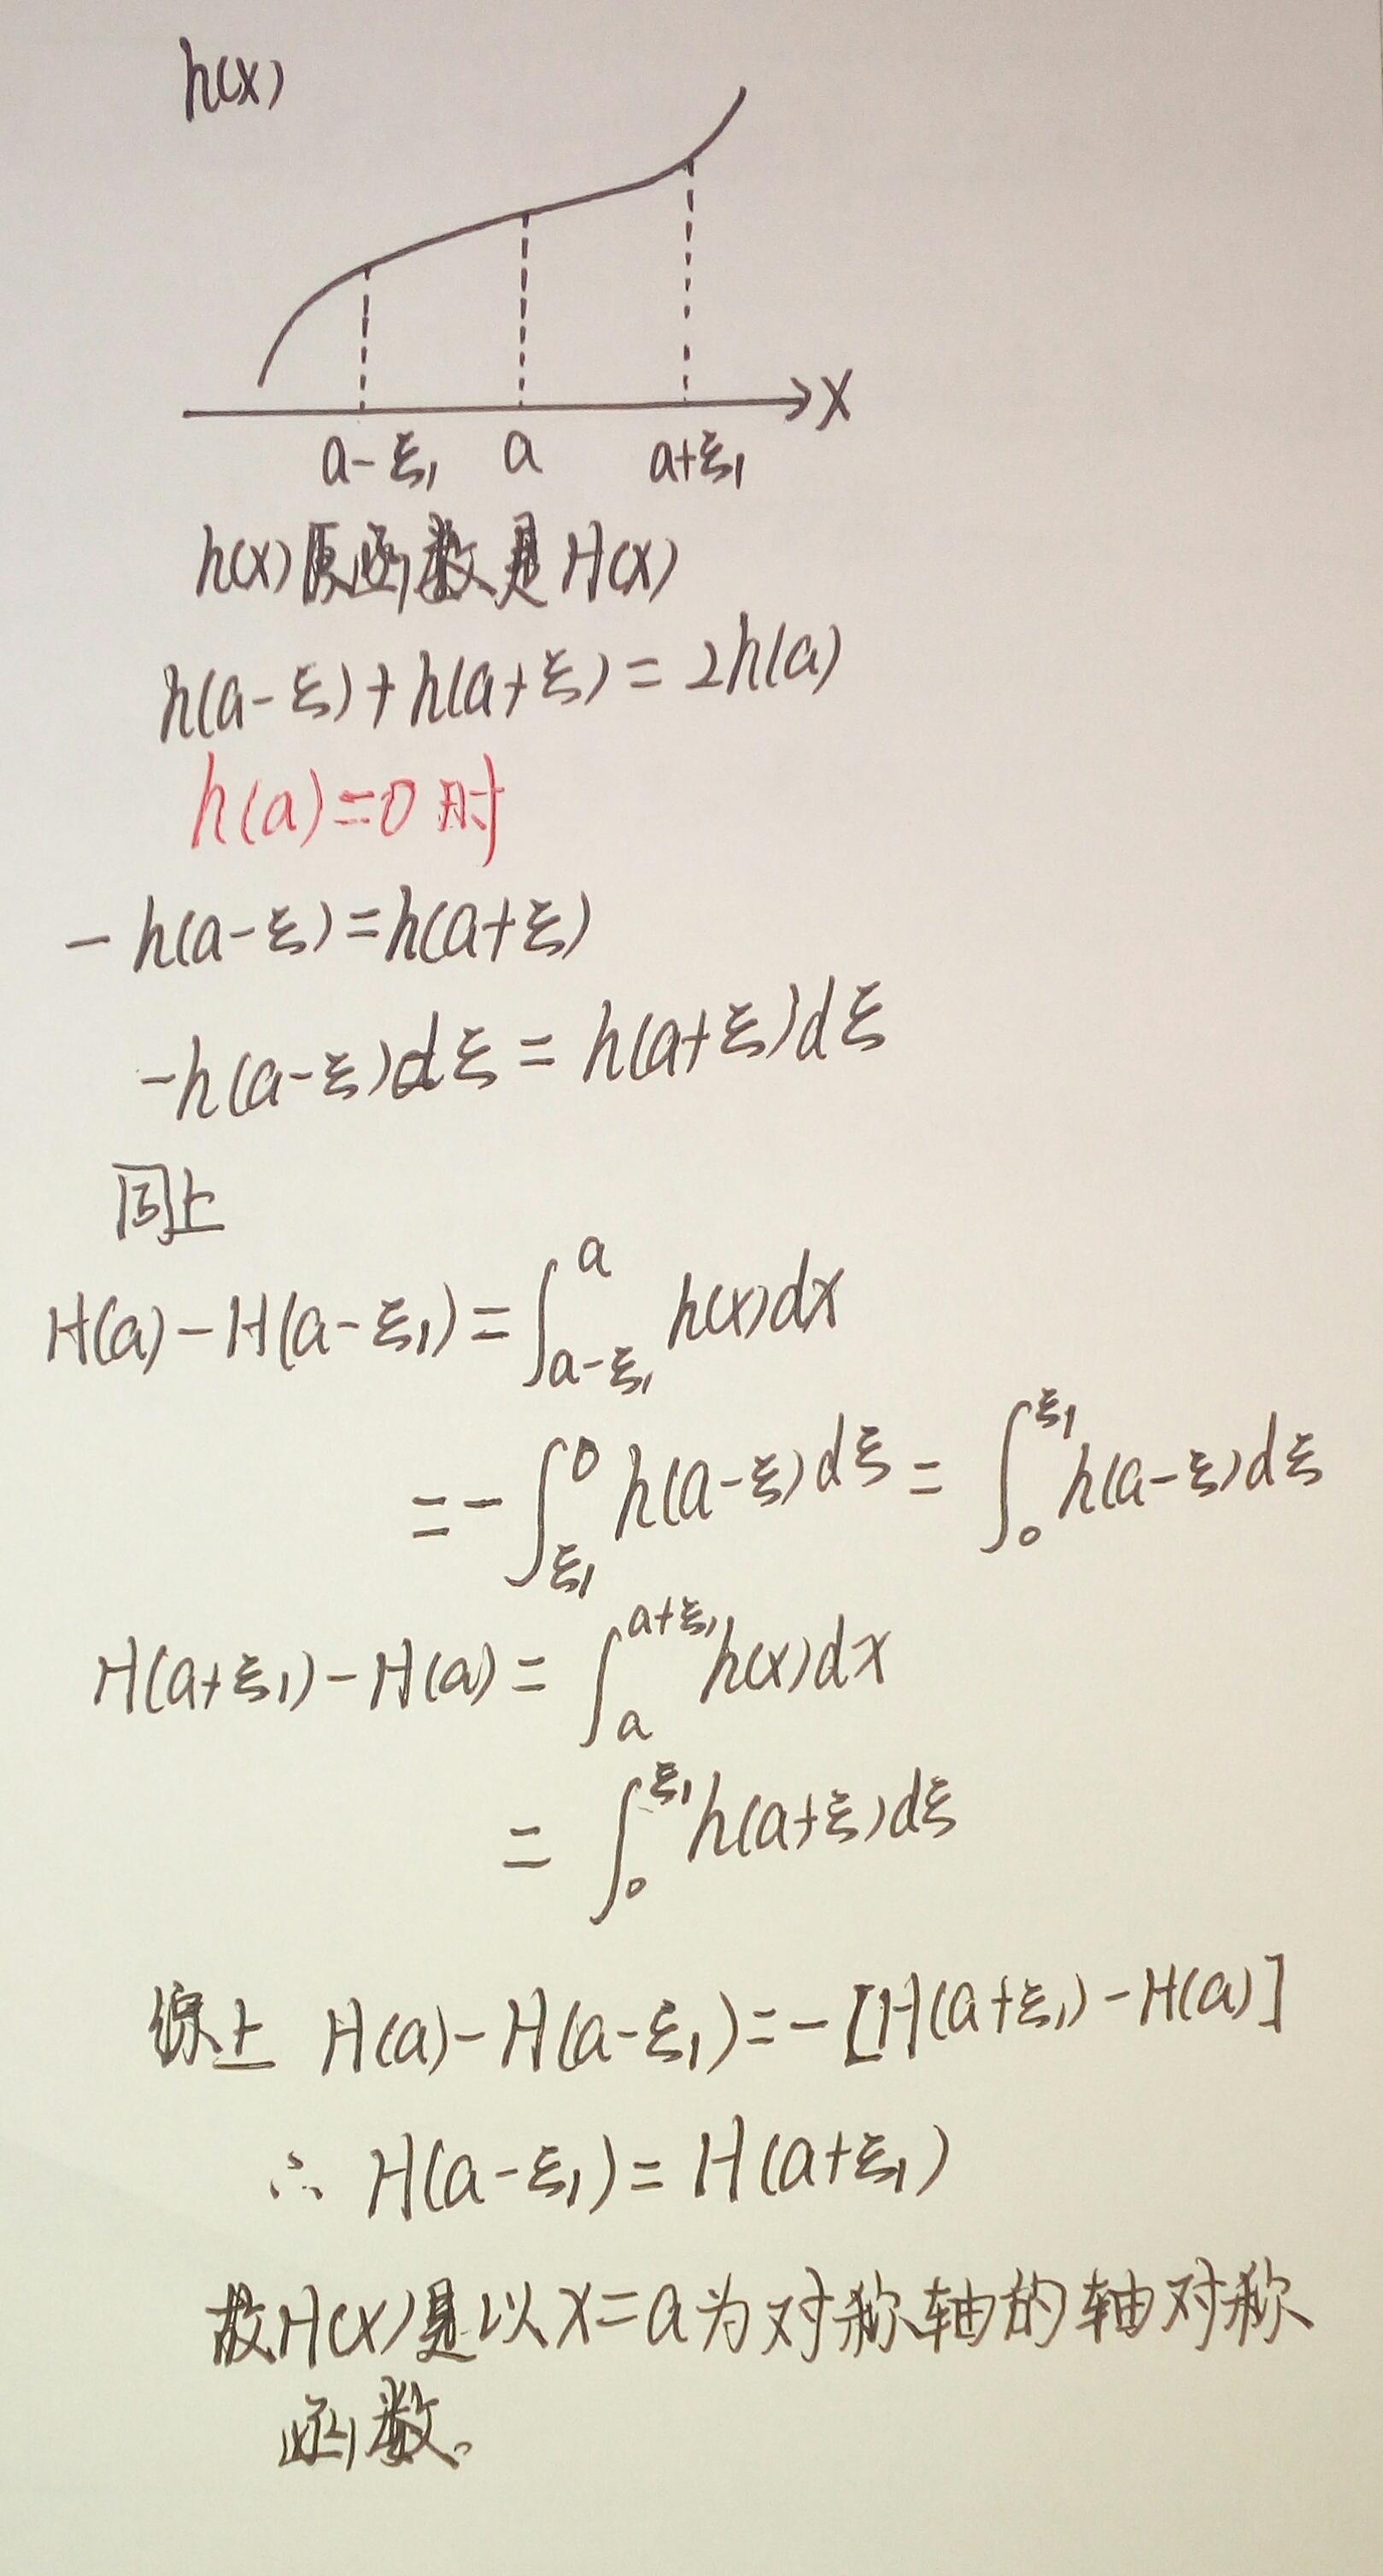 h(x)
x
a-ξ₁ a a+ξ₁
h(x)原函数是H(x)
h(a-ξ)+h(a+ξ)=2h(a)
h(a)=0时
-h(a-ξ)=h(a+ξ)
-h(a-ξ)dξ=h(a+ξ)dξ
同上
H(a)-H(a-ξ₁)=∫_{a-ξ₁}^{a} h(x)dx
=-∫_{ξ₁}^{0} h(a-ξ)dξ=∫_{0}^{ξ₁} h(a-ξ)dξ
H(a+ξ₁)-H(a)=∫_{a}^{a+ξ₁} h(x)dx
=∫_{0}^{ξ₁} h(a+ξ)dξ
综上 H(a)-H(a-ξ₁)=-[H(a+ξ₁)-H(a)]
∴ H(a-ξ₁)=H(a+ξ₁)
故H(x)是以x=a为对称轴的轴对称
函数。